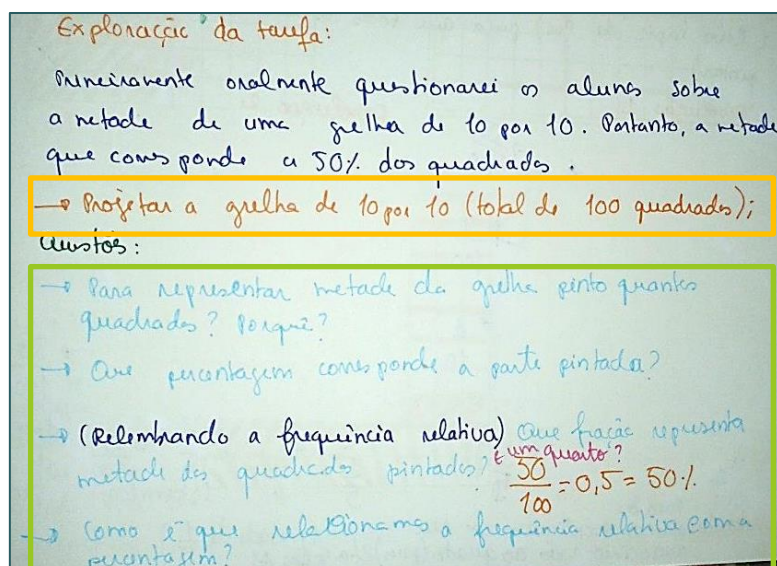 Exploração da tarefa:
Primeiramente oralmente questionarei os alunos sobre
a metade de uma grelha de 10 por 10. Portanto, a metade
que corresponde a 50% dos quadrados.
→ Projetar a grelha de 10 por 10 (total de 100 quadrados);
Questões:
→ Para representar metade da grelha pinto quantos
quadrados? Porquê?
→ Que percentagem corresponde a parte pintada?
→ (Relembrando a frequência relativa) Que fração representa
metade dos quadrados pintados? E um quarto?
50/100 = 0,5 = 50%
→ Como é que relacionamos a frequência relativa com a
percentagem?